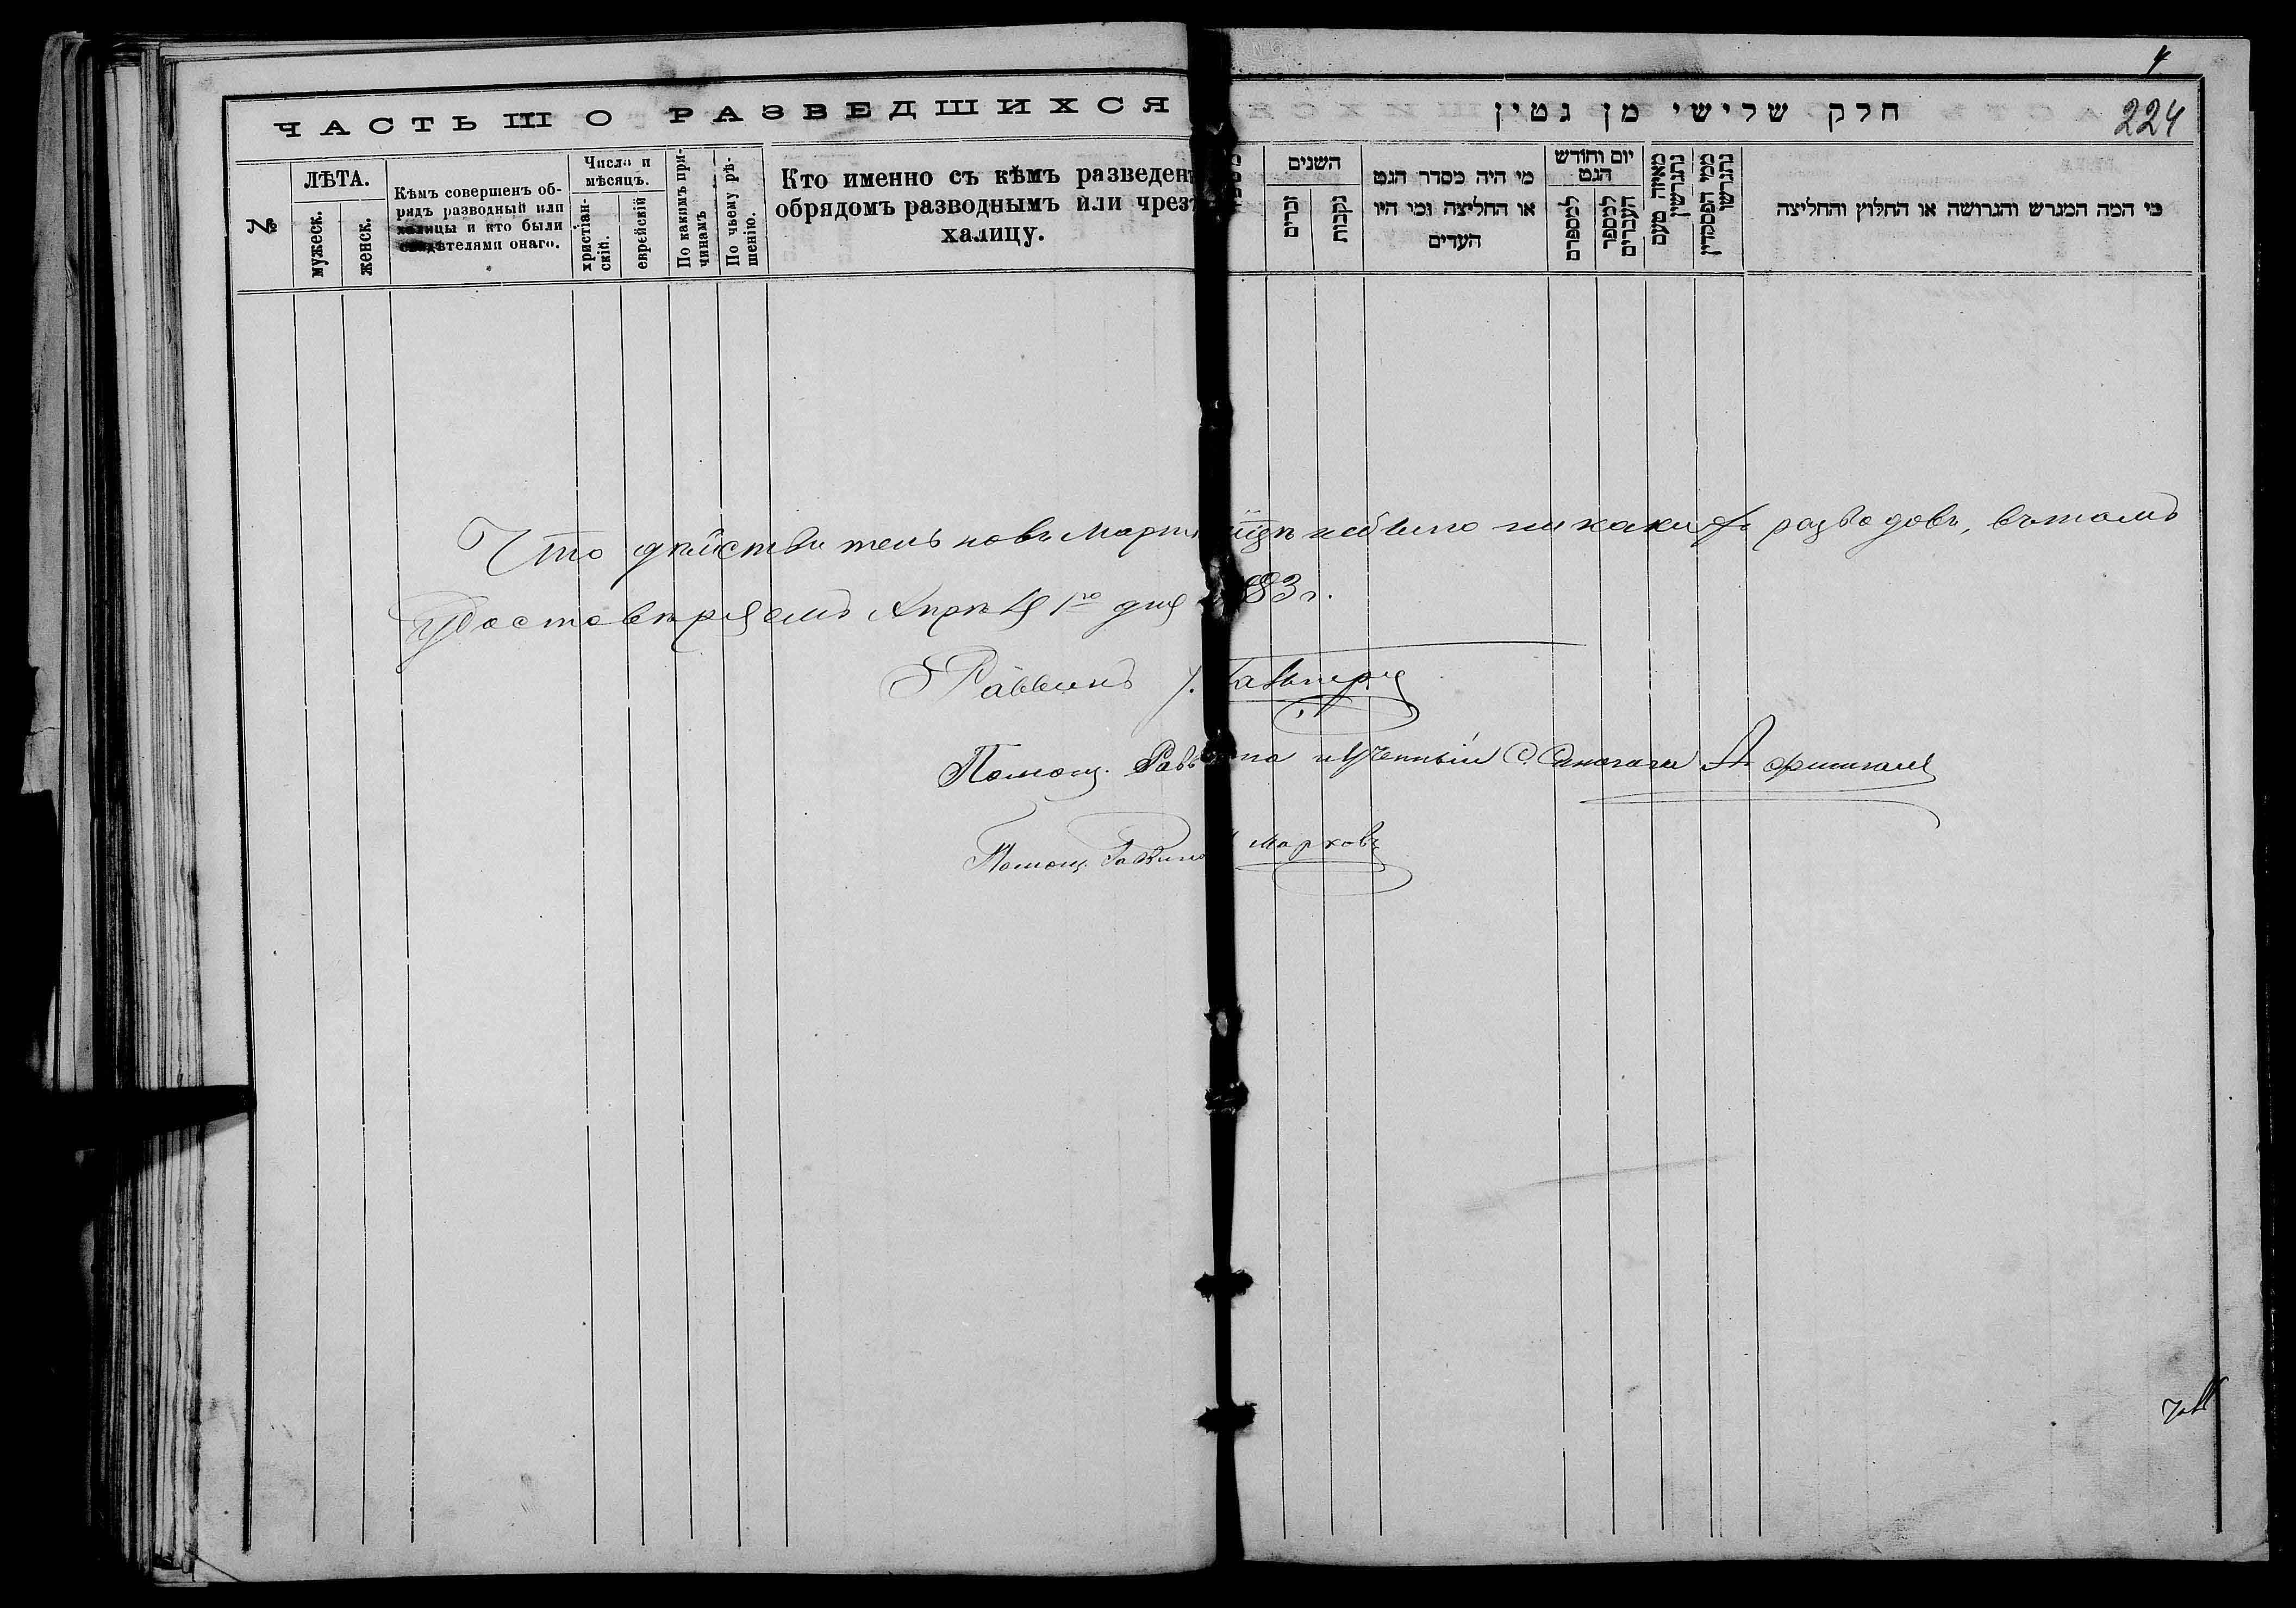 4
224
ЧАСТЬ III О РАЗВЕДШИХСЯ
חלק שלישי מן גטין
№
ЛѢТА.
мужеск.
женск.
Кѣмъ совершенъ об-
рядъ разводный или
халицы и кто были
свидѣтелями онаго.
Числа и
мѣсяцъ.
христіан-
скій.
еврейскій
По какимъ при-
чинамъ
По чьему рѣ-
шенію.
Кто именно съ кѣмъ разведенъ
обрядомъ разводнымъ или чрезъ
халицу.
השנים
זכרים
נקבות
מי היה מסדר הגט
או החליצה ומי היו
העדים
יום וחודש
הגט
למספרם
למספר
העברים
מאיזה טעם
נתגרשין
ממי הפסק דין
נתגרשו
מי המה המגרש והגרושה או החלוץ והחליצה
Что дѣйствительно въ Мартѣ мцѣ небыло никакихъ разводовъ, въ томъ
удостовѣряемъ Апрѣля 1го дня 1883 г.
Раввинъ
Помощ. Раввина и Ученный С. Синагоги
Помощ. Равина Марковъ